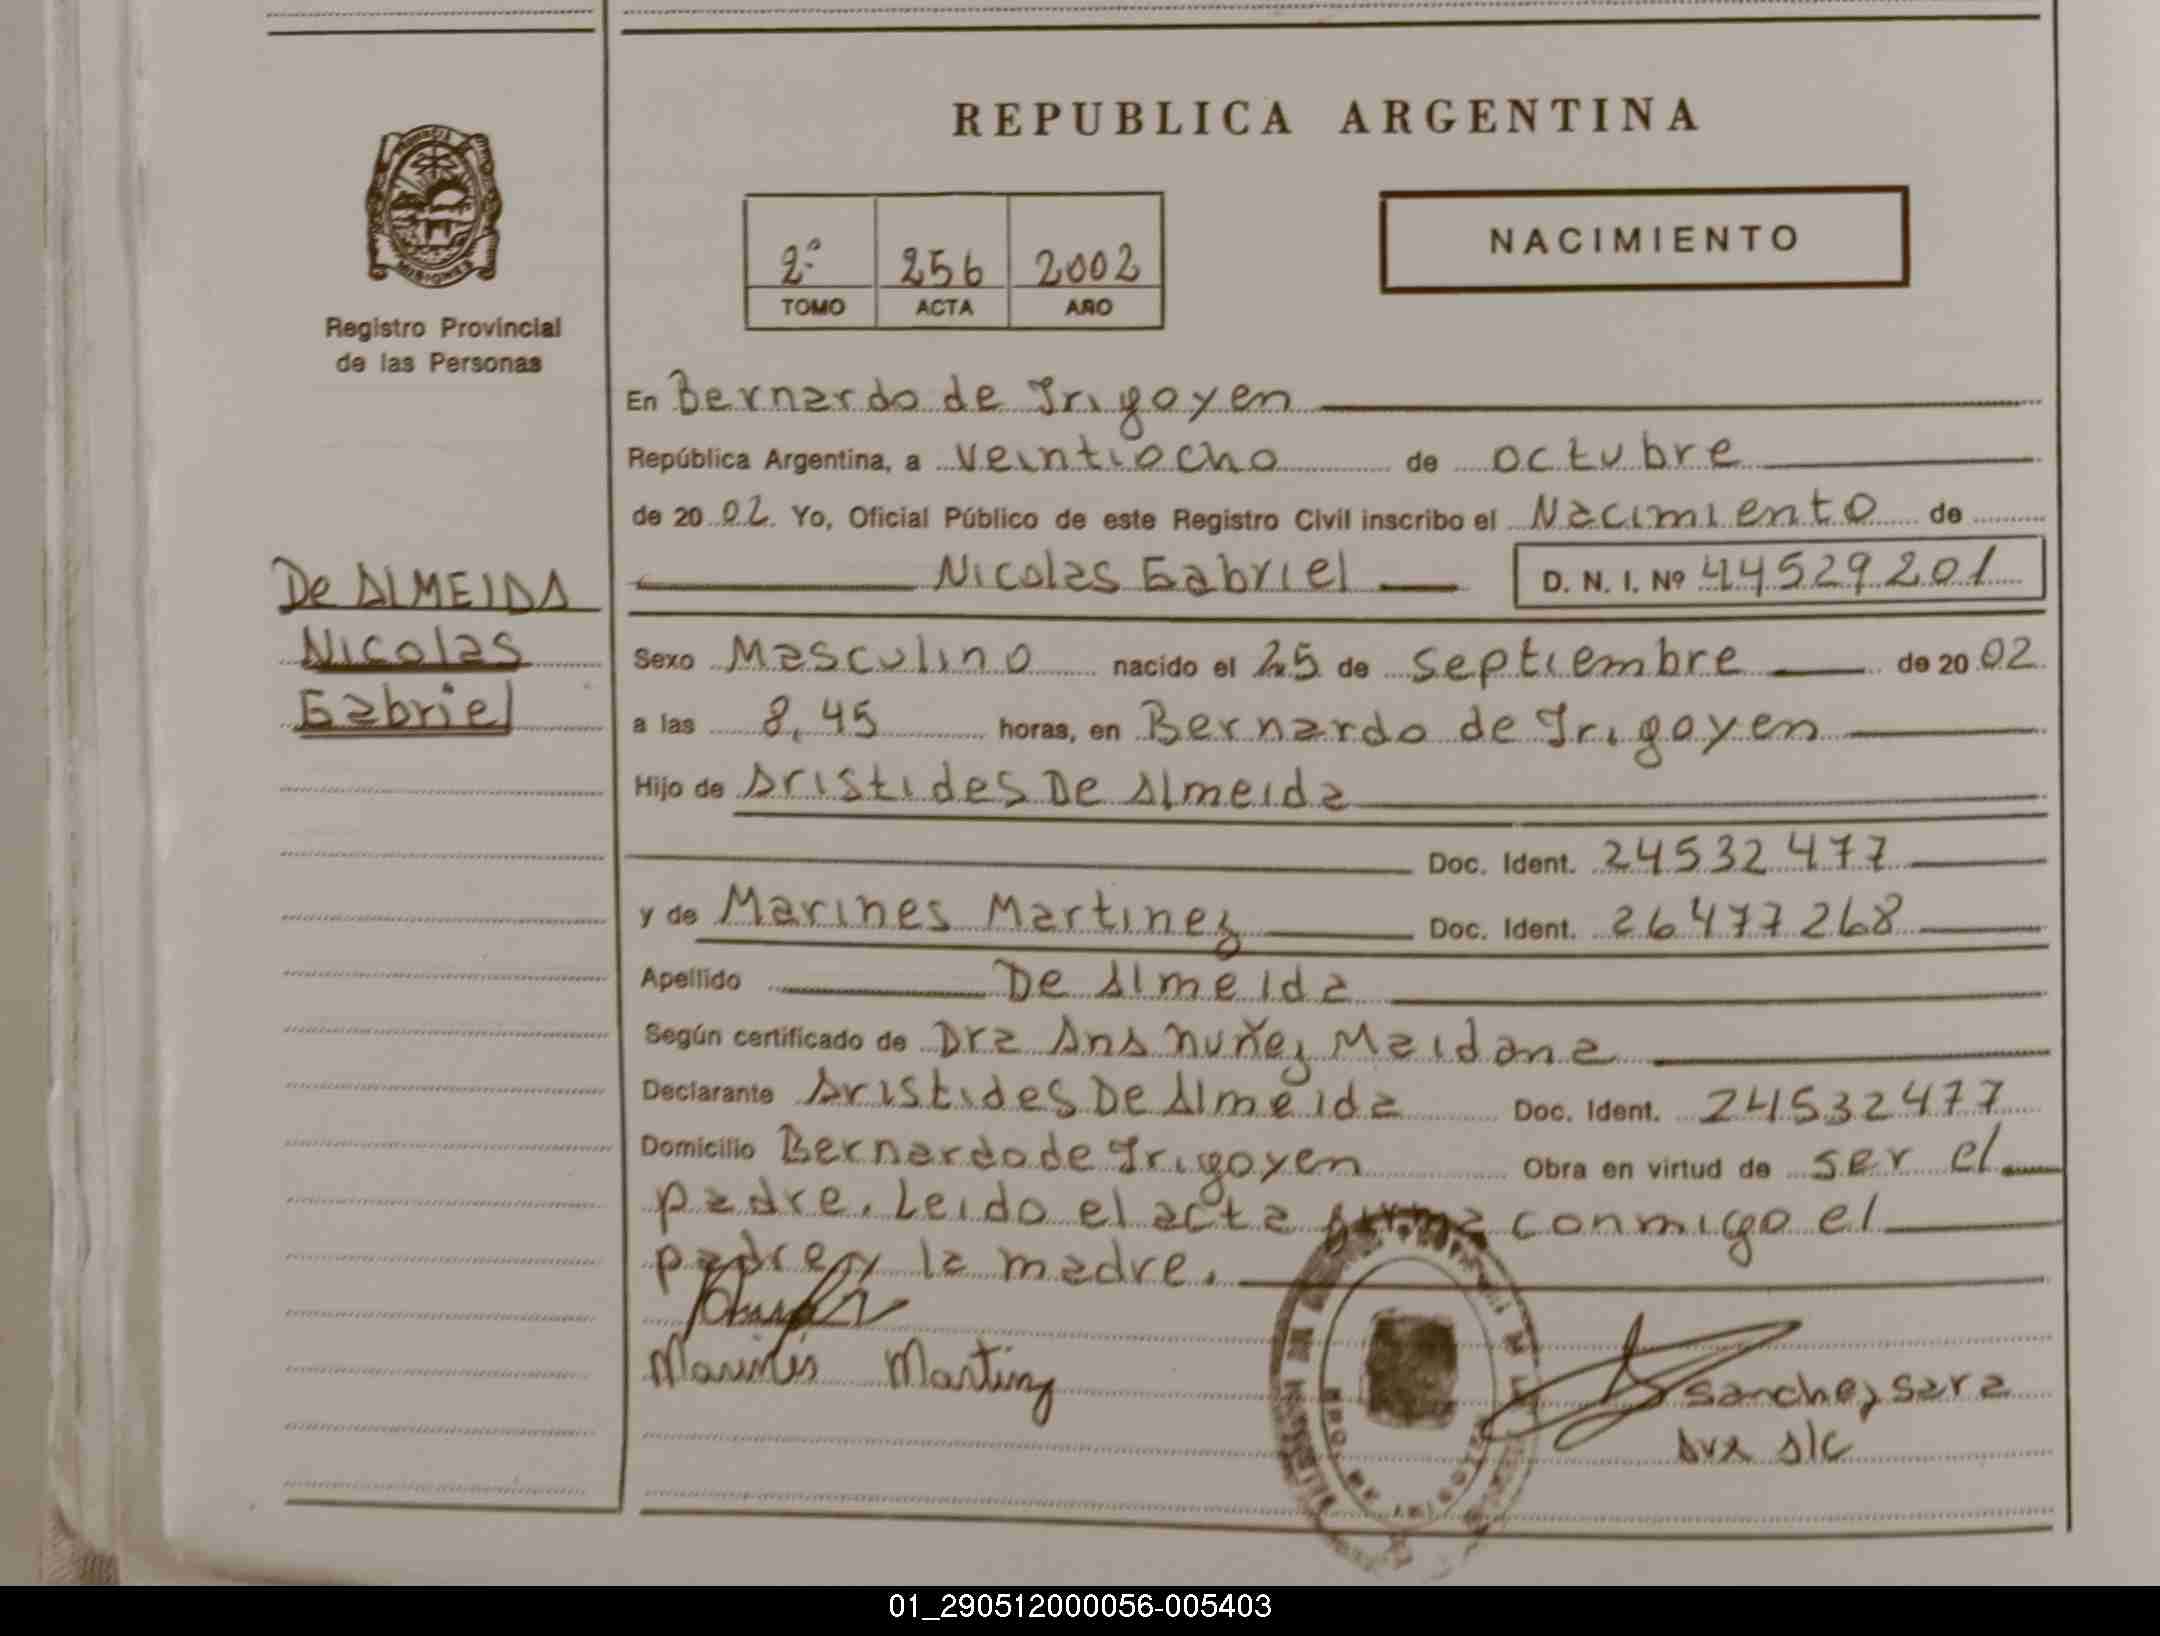 REPUBLICA ARGENTINA
MISIONES
Registro Provincial
de las Personas
2º 256 2002
TOMO ACTA AÑO
NACIMIENTO
En Bernardo de Irigoyen
República Argentina, a veintiocho de octubre
de 20 02. Yo, Oficial Público de este Registro Civil inscribo el Nacimiento de
De ALMEIDA
Nicolas
Gabriel
Nicolas Gabriel D. N. I. Nº 44529201
Sexo Masculino nacido el 25 de septiembre de 20 02
a las 8,45 horas, en Bernardo de Irigoyen
Hijo de Aristides De Almeida
Doc. Ident. 24532477
y de Marines Martinez Doc. Ident. 26477268
Apellido De Almeida
Según certificado de Dra Ana Nuñez Maidana
Declarante Aristides De Almeida Doc. Ident. 24532477
Domicilio Bernardo de Irigoyen Obra en virtud de ser el
padre. Leido el acta firma conmigo el
padre y la madre.
Marines Martinez
Sanchez Sara
Aux A/C
01_290512000056-005403